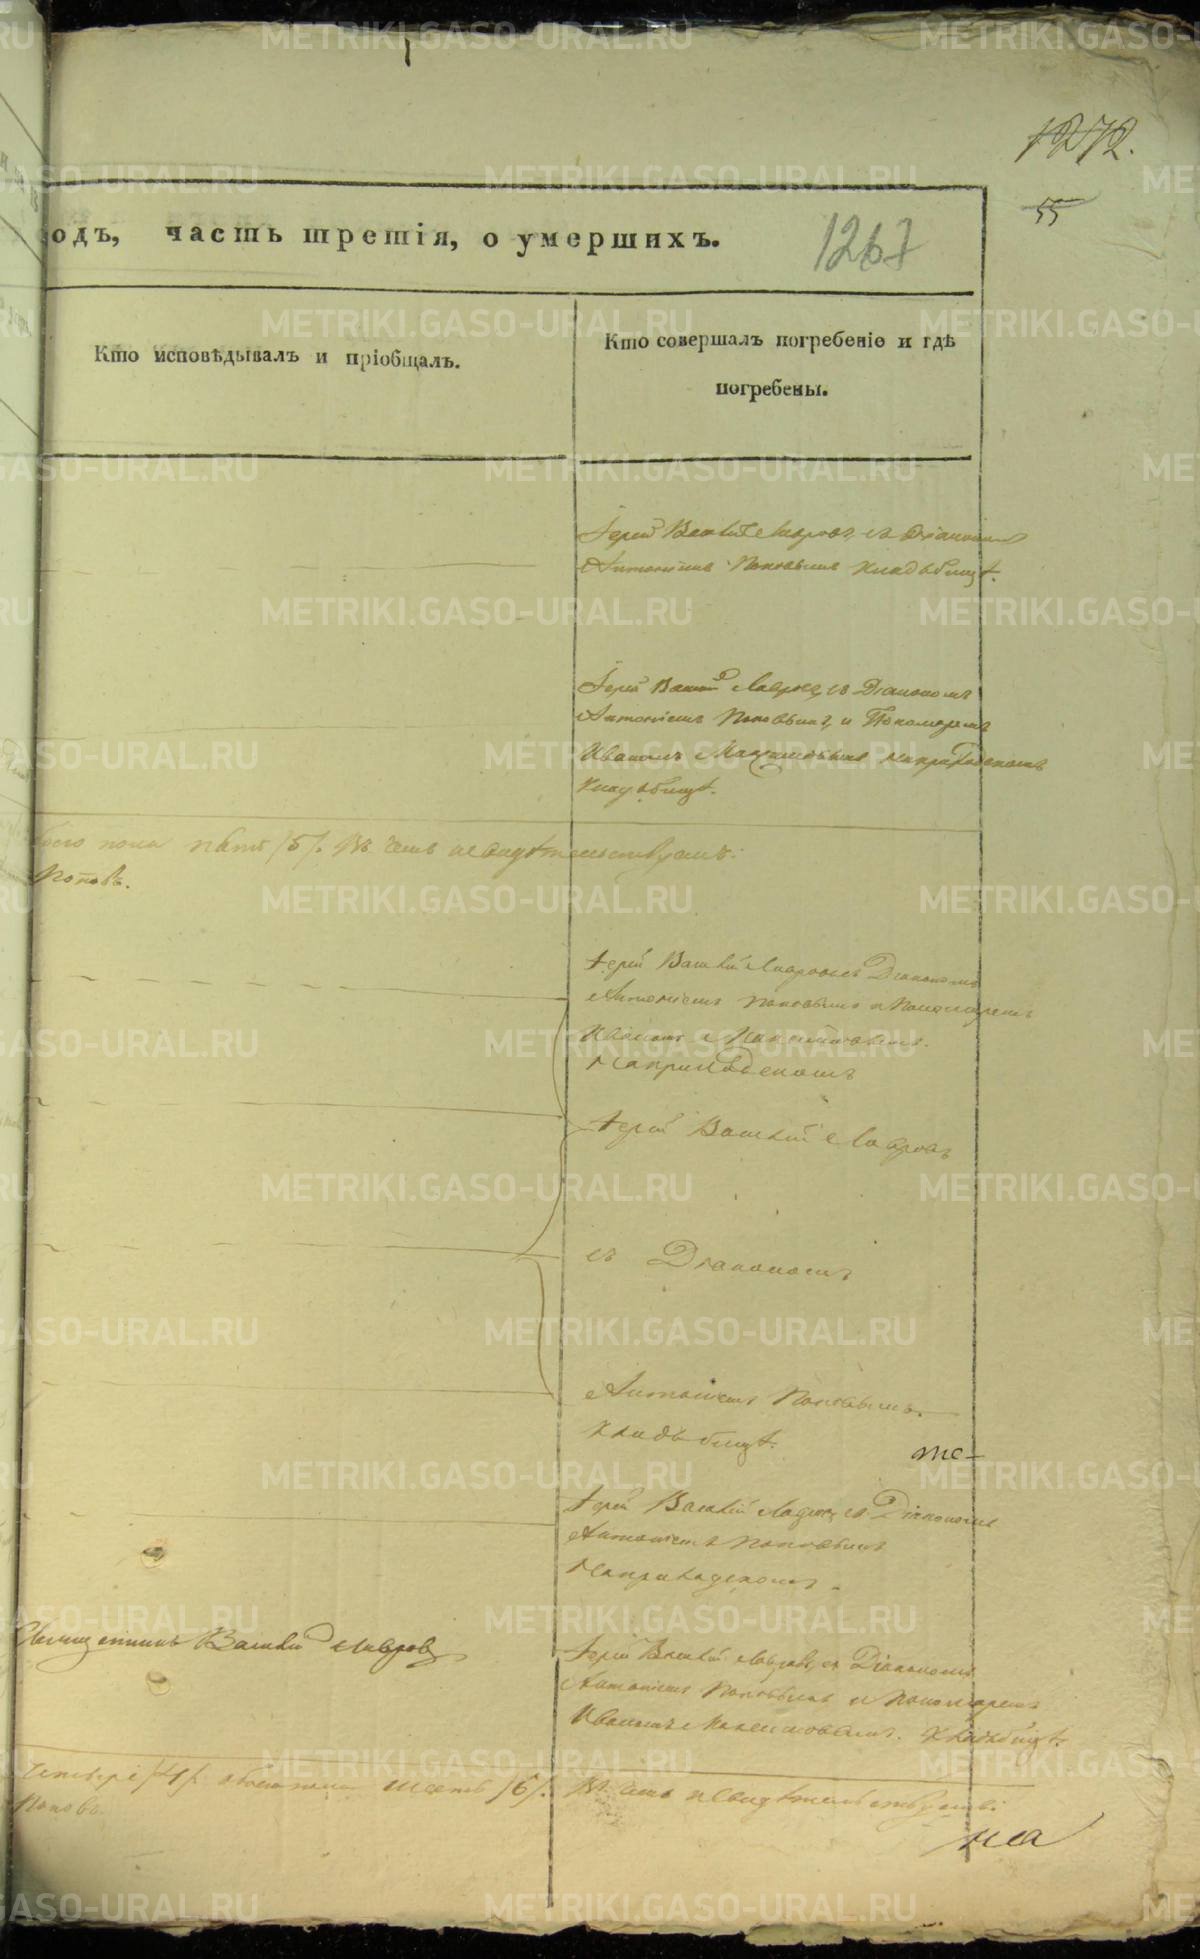 1272.
55
одъ, часть третія, о умершихъ.
1267
Кто исповѣдывалъ и пріобщалъ.
Кто совершалъ погребеніе и гдѣ
погребены.
Іерей Василій Лавровъ, съ Діакономъ
Антоніемъ Поповымъ Кладъбищѣ.
Іерей Василій Лавровъ, съ Діакономъ
Антоніемъ Поповымъ, и Пономаремъ
Иваномъ Максимовымъ наприходскомъ
Кладъбищѣ.
боего пола пять /5/. Въ чемъ и свидѣтельствуемъ:
Поповъ.
Іерей Василій Лавровъ съ Діакономъ
Антоніемъ Поповымъ и Пономаремъ
Иваномъ Максимовымъ.
Наприходскомъ
Іерей Василій Лавровъ
съ Діакономъ
Антоніемъ Поповымъ.
Кладъбищѣ.
те-
Іерей Василій Лавровъ, съ Діакономъ
Антоніемъ Поповымъ
Наприходскомъ.
Священникъ Василій Лавровъ
Іерей Василій Лавровъ, съ Діакономъ
Антоніемъ Поповымъ и Пономаремъ
Иваномъ Максимовымъ. Кладъбищѣ.
четыре /4/. обоего пола шесть /6/. Въ чемъ и свидѣтельствуемъ:
Поповъ.
на
METRIKI.GASO-URAL.RU